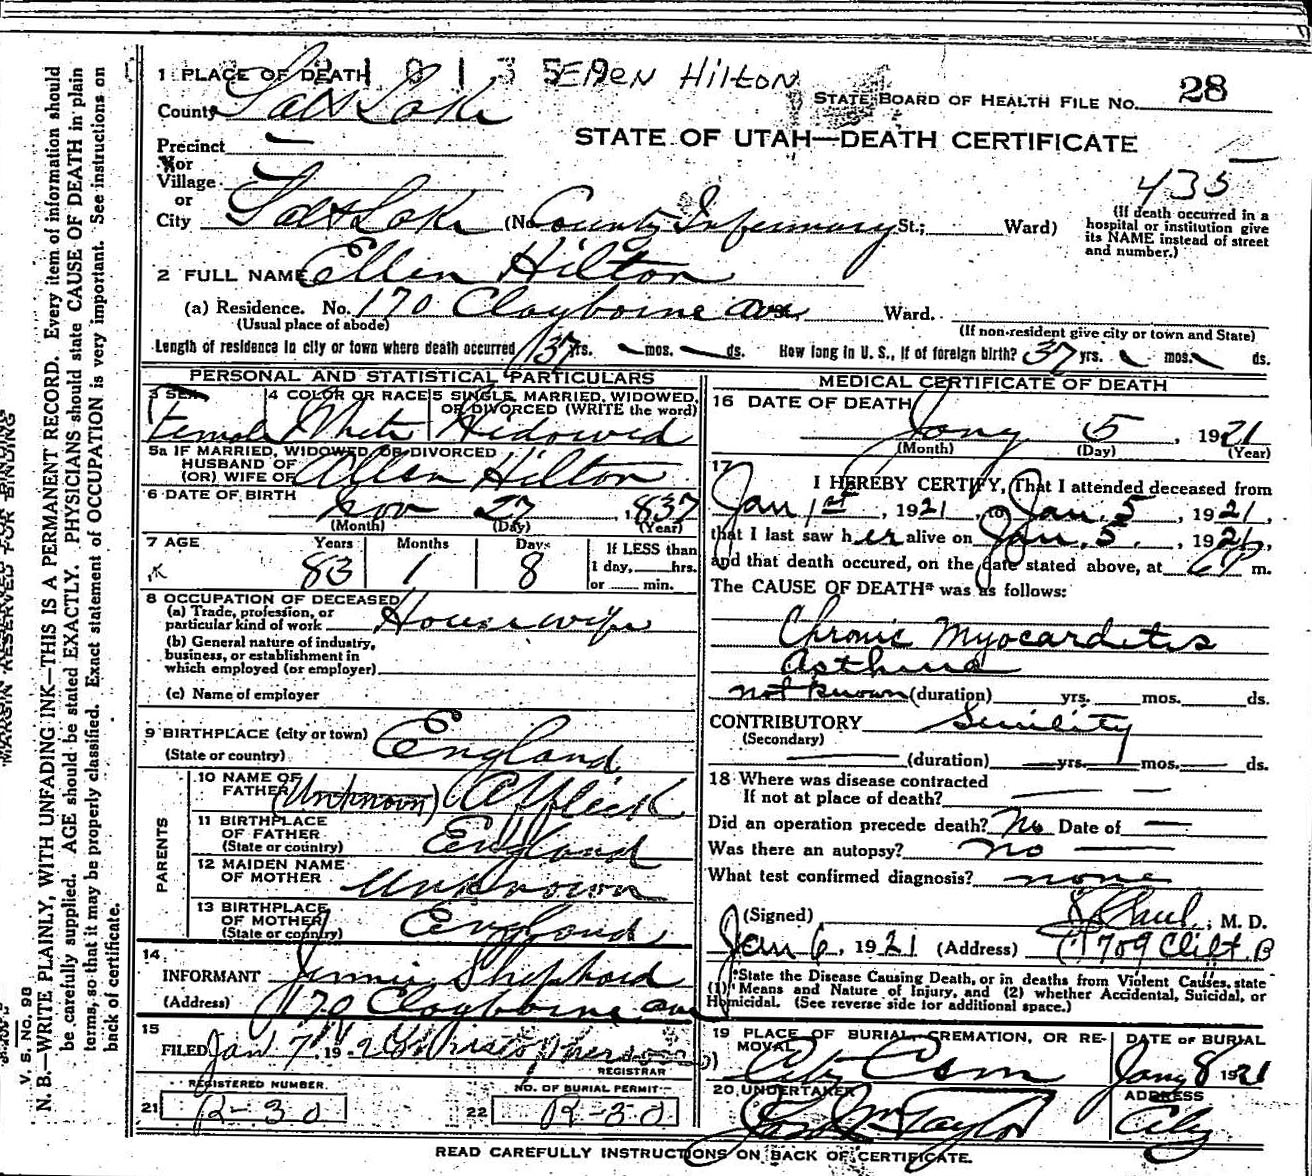 1 PLACE OF DEATH Ellen Hilton
County Salt Lake STATE BOARD OF HEALTH FILE NO. 28
Precinct — STATE OF UTAH—DEATH CERTIFICATE
or
Village
or
City Salt Lake (No County Infirmary St.; Ward)
435
(If death occurred in a
hospital or institution give
its NAME instead of street
and number.)
2 FULL NAME Ellen Hilton
(a) Residence. No. 170 Clayborne Ave. Ward.
(Usual place of abode) (If non-resident give city or town and State)
Length of residence in city or town where death occurred 37 yrs. mos. ds. How long in U. S., if of foreign birth? 37 yrs. mos. ds.
PERSONAL AND STATISTICAL PARTICULARS
3 SEX 4 COLOR OR RACE 5 SINGLE, MARRIED, WIDOWED,
OR DIVORCED (WRITE the word)
Female White Widowed
5a IF MARRIED, WIDOWED, OR DIVORCED
HUSBAND OF
(OR) WIFE OF Allen Hilton
6 DATE OF BIRTH Nov 27, 1837
(Month) (Day) (Year)
7 AGE Years Months Days If LESS than
83 1 8 1 day, hrs.
or min.
8 OCCUPATION OF DECEASED
(a) Trade, profession, or
particular kind of work Housewife
(b) General nature of industry,
business, or establishment in
which employed (or employer)
(c) Name of employer
9 BIRTHPLACE (city or town)
(State or country) England
PARENTS
10 NAME OF
FATHER (Unknown) Affleck
11 BIRTHPLACE
OF FATHER
(State or country) England
12 MAIDEN NAME
OF MOTHER Unknown
13 BIRTHPLACE
OF MOTHER
(State or country) England
14
INFORMANT Jennie Shephard
(Address) 170 Clayborne ave
15
FILED Jan 7, 19
REGISTRAR
REGISTERED NUMBER NO. OF BURIAL PERMIT
21 R-30 22 R-30
MEDICAL CERTIFICATE OF DEATH
16 DATE OF DEATH
Jany 5, 1921
(Month) (Day) (Year)
17
I HEREBY CERTIFY, That I attended deceased from
Jan 1st, 1921, to Jan. 5, 1921,
that I last saw her alive on Jan. 5., 1921,
and that death occured, on the date stated above, at m.
The CAUSE OF DEATH* was as follows:
Chronic Myocarditis
Asthma
not known (duration) yrs. mos. ds.
CONTRIBUTORY Senility
(Secondary)
(duration) yrs. mos. ds.
18 Where was disease contracted
If not at place of death? — —
Did an operation precede death? No Date of —
Was there an autopsy? no —
What test confirmed diagnosis? none
(Signed) , M. D.
Jan 6, 1921 (Address) 709 Clift. B
*State the Disease Causing Death, or in deaths from Violent Causes, state
(1) Means and Nature of Injury, and (2) whether Accidental, Suicidal, or
Homicidal. (See reverse side for additional space.)
19 PLACE OF BURIAL, CREMATION, OR RE- DATE OF BURIAL
MOVAL
City Cem Jany 8 1921
20 UNDERTAKER ADDRESS
Taylor City
READ CAREFULLY INSTRUCTIONS ON BACK OF CERTIFICATE.
MARGIN RESERVED FOR BINDING
V. S. No. 98
N. B.—WRITE PLAINLY, WITH UNFADING INK—THIS IS A PERMANENT RECORD. Every item of information should
be carefully supplied. AGE should be stated EXACTLY. PHYSICIANS should state CAUSE OF DEATH in plain
terms, so that it may be properly classified. Exact statement of OCCUPATION is very important. See instructions on
back of certificate.